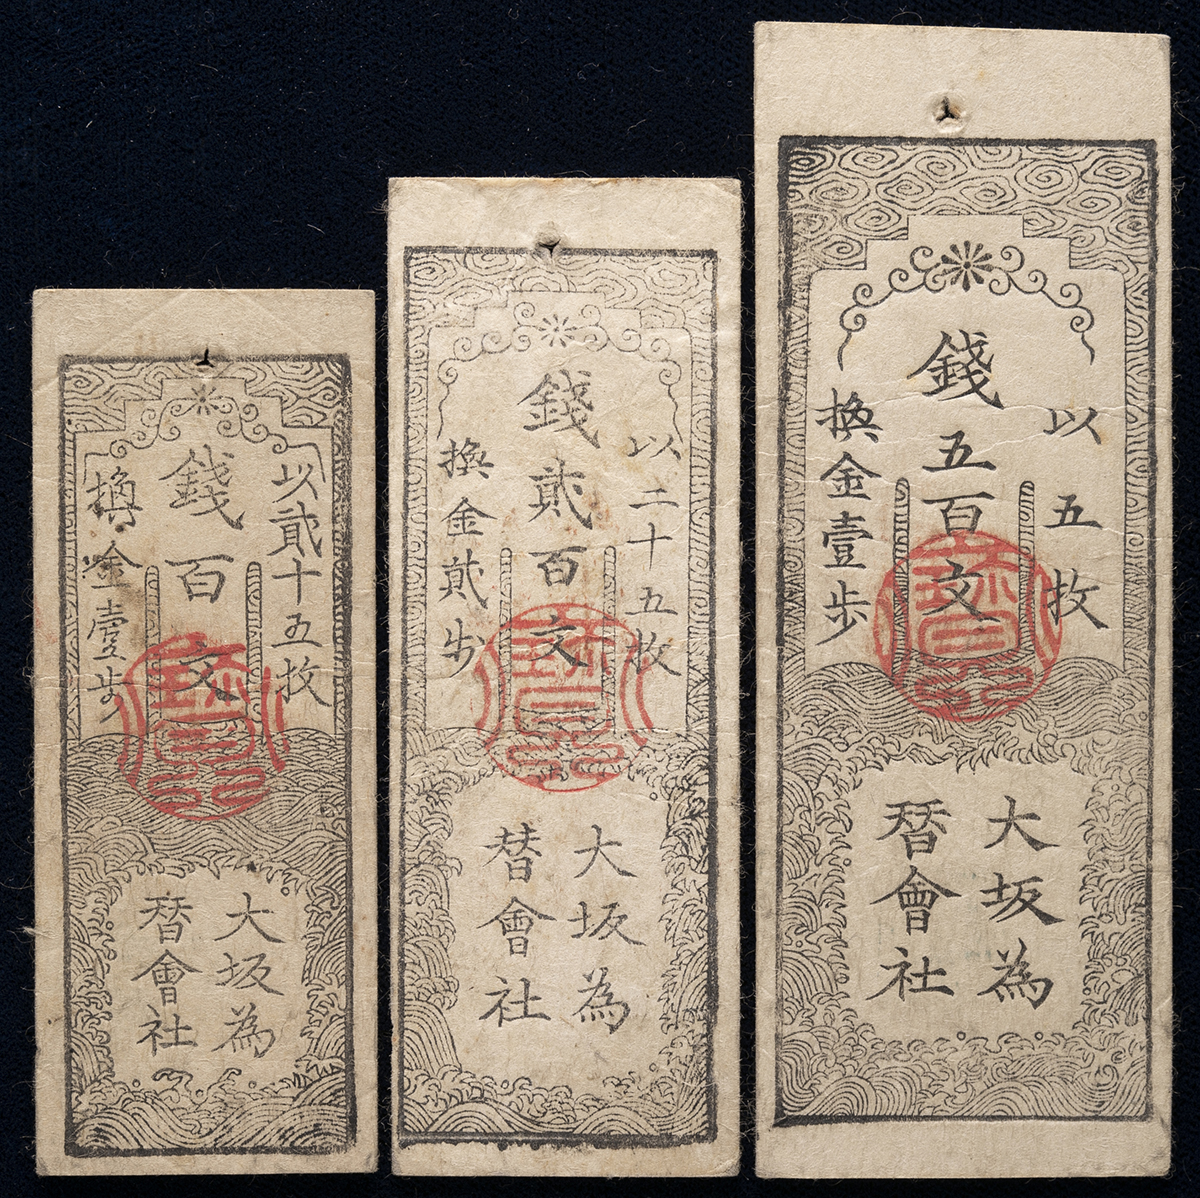 以貳十五枚
錢百文
換金壹歩
大坂為
替會社
以二十五枚
錢貳百文
換金貳歩
大坂為
替會社
以五枚
錢五百文
換金壹歩
大坂為
替會社